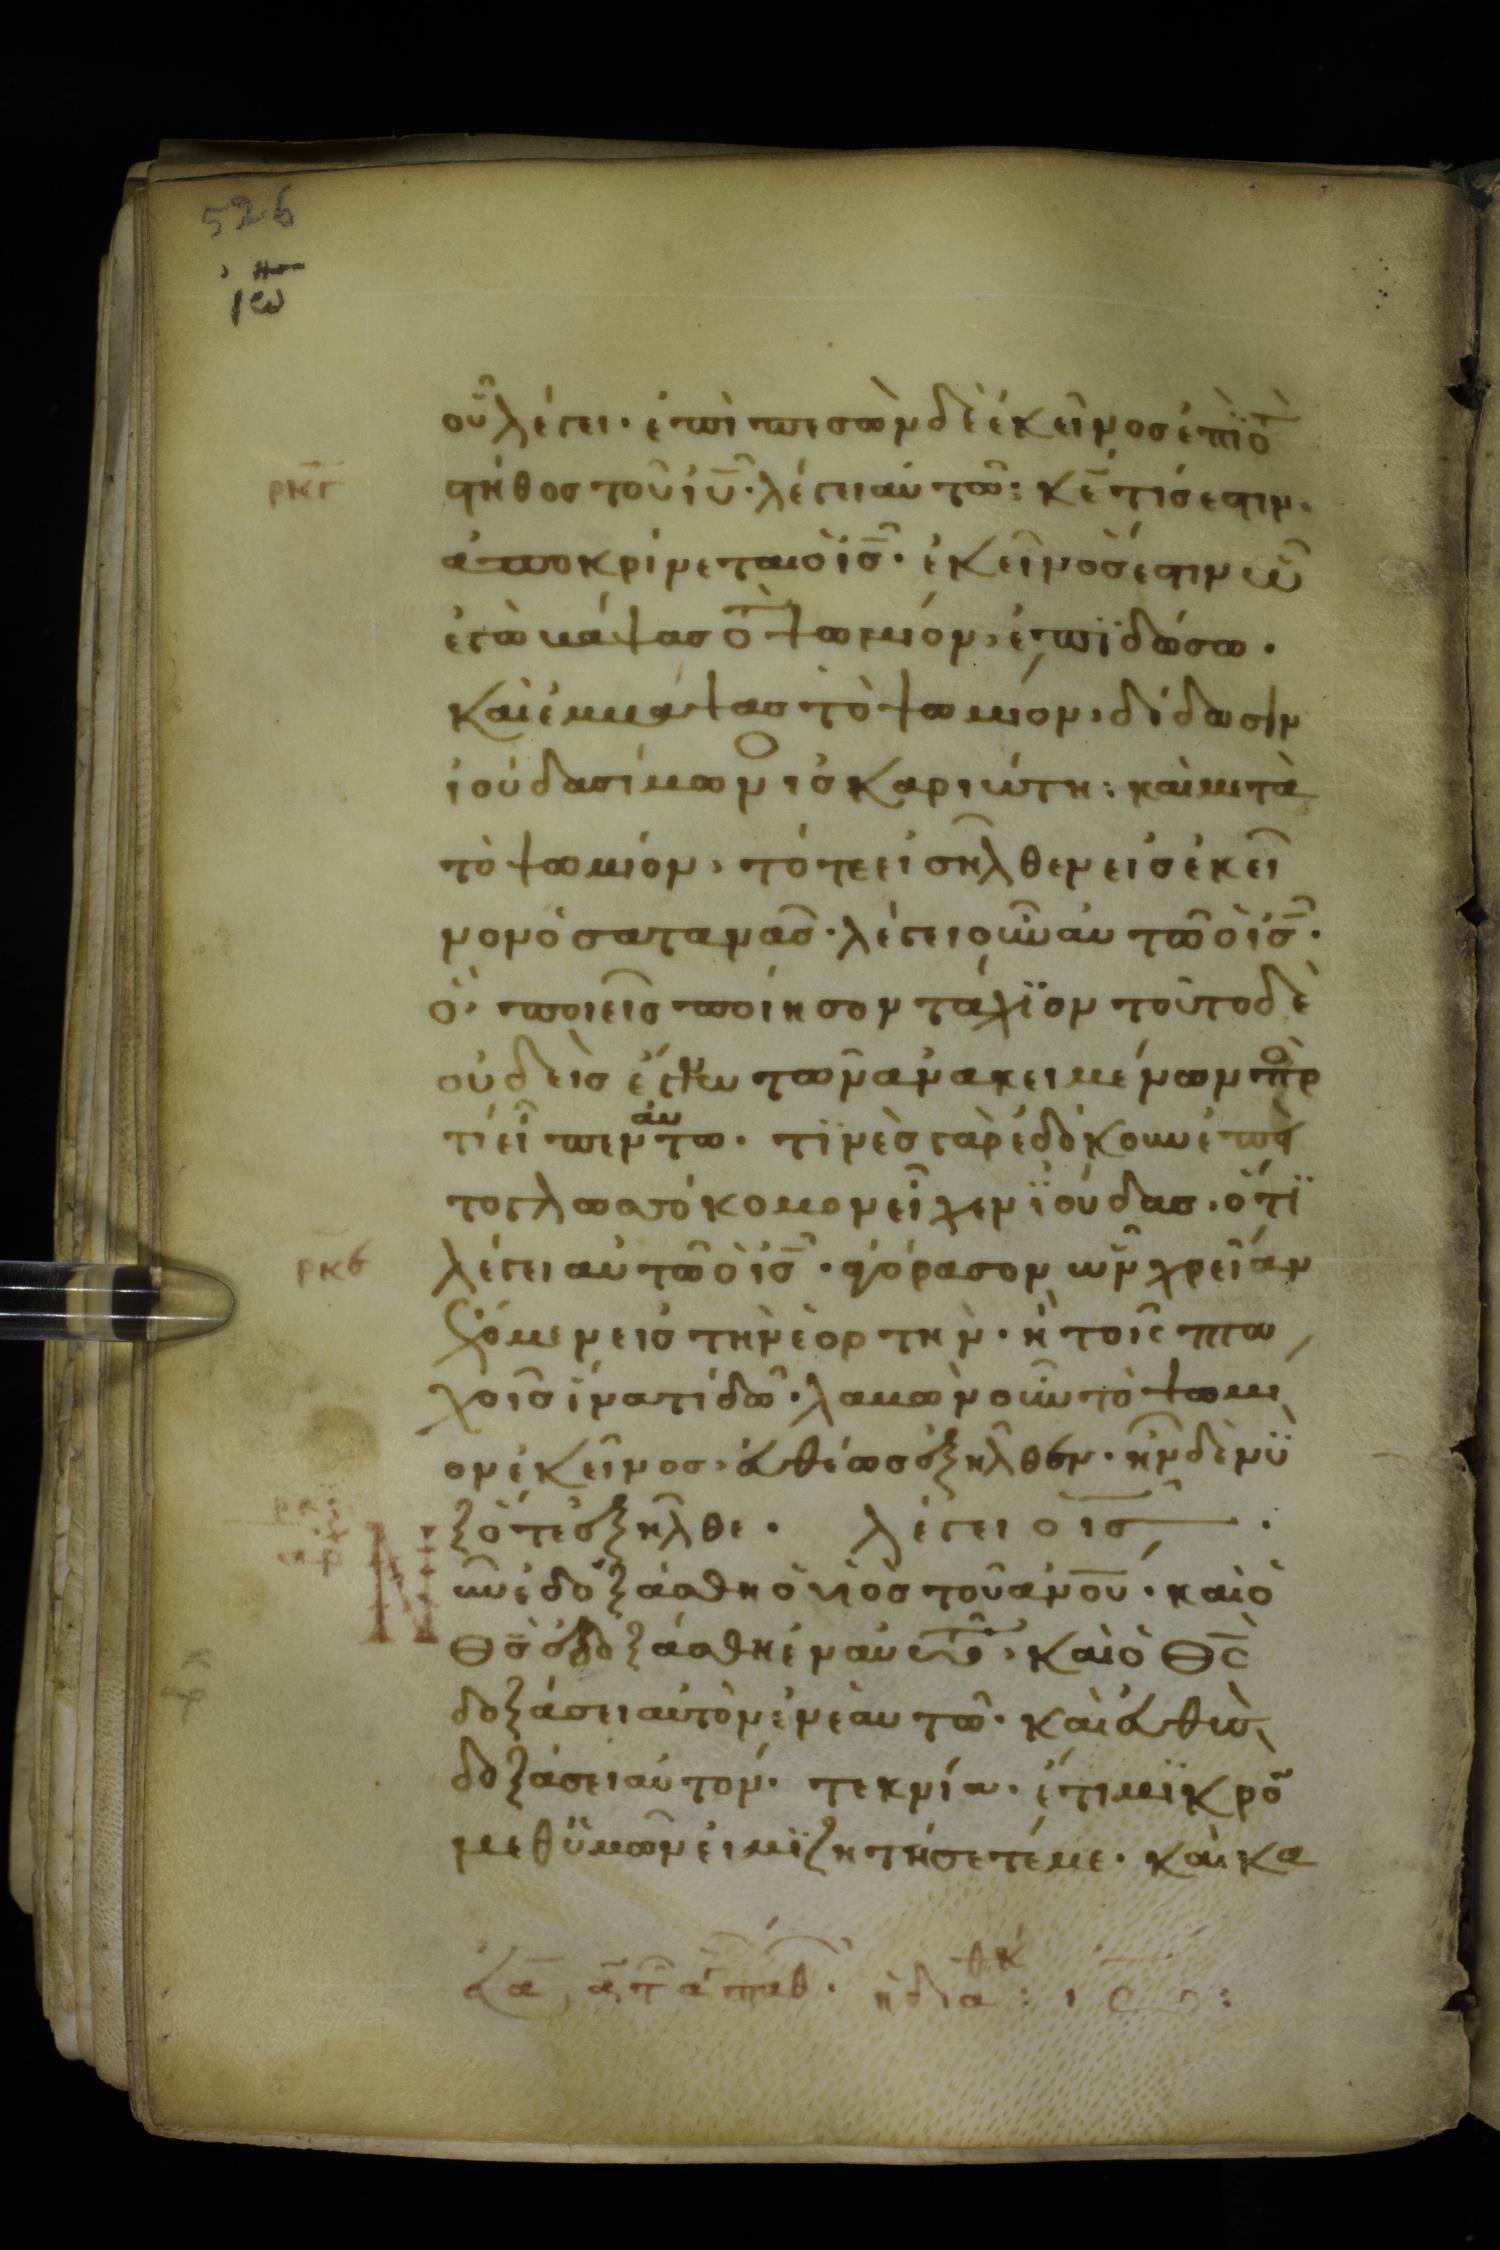 526
ιω
οὗ λέγει· ἐπιπεσὼν δὲ ἐκεῖνος ἐπὶ το
στῆθος τοῦ ἰυ̅· λέγει αὐτῶ: κε̅ τίς ἐστιν·
ρκγ
ἀποκρίνεται ὁ ις̅· ἐκεῖνος ἐστιν ὧ
ἐγὼ βάψας το ψωμίον, ἐπϊδώσω·
καὶ ἐμβάψας τὸ ψωμίον, δίδωσιν
ἰούδα σίμωνι ἰσκαριώτη: καὶ μετὰ
τὸ ψωμίον, τότε εἰσῆλθεν εἰς ἐκεῖ
νον ὁ σατανᾶς· λέγει οὖν αὐτῶ ὁ ις̅·
ὃ ποιεῖς ποίησον τάχϊον τοῦτο δὲ
οὐδεὶς ἔγνω τῶν ἀνακειμένων πρ
τί εἶπεν αὐτω· τϊνὲς γὰρ ἐδόκουν ἐπὰ
το γλωσσόκομον εἶχεν ϊούδας, ὅτϊ
λέγει αὐτῶ ὁ ις̅· ἀγόρασον ὧν χρείαν
ρκϛ
ἔχομεν εἰς τὴν ἑορτήν· ἢ τοῖς πτω
χοῖς ἵνα τί δῶ· λαβὼν οὖν τὸ ψωμί
ον ἐκεῖνος, εὐθέως ἐξῆλθεν· ἦν δὲ νὺ
ξ ὅτε ἐξῆλθε· λέγει ὁ ις̅·
Νῦν ἐδοξάσθη ὁ υἱὸς τοῦ ἀνου̅· καὶ ὁ
θς̅ ἐδοξάσθη ἐν αὐτῶ, καὶ ὁ θς̅
δοξάσει αὐτὸν ἐν ἑαυτῶ· καὶ εὐθὺς
δοξάσει αὐτόν· τεκνία· ἔτι μϊκρὸ
μεθ ὑμῶν εἰμϊ ζητήσετέ με· καὶ κα